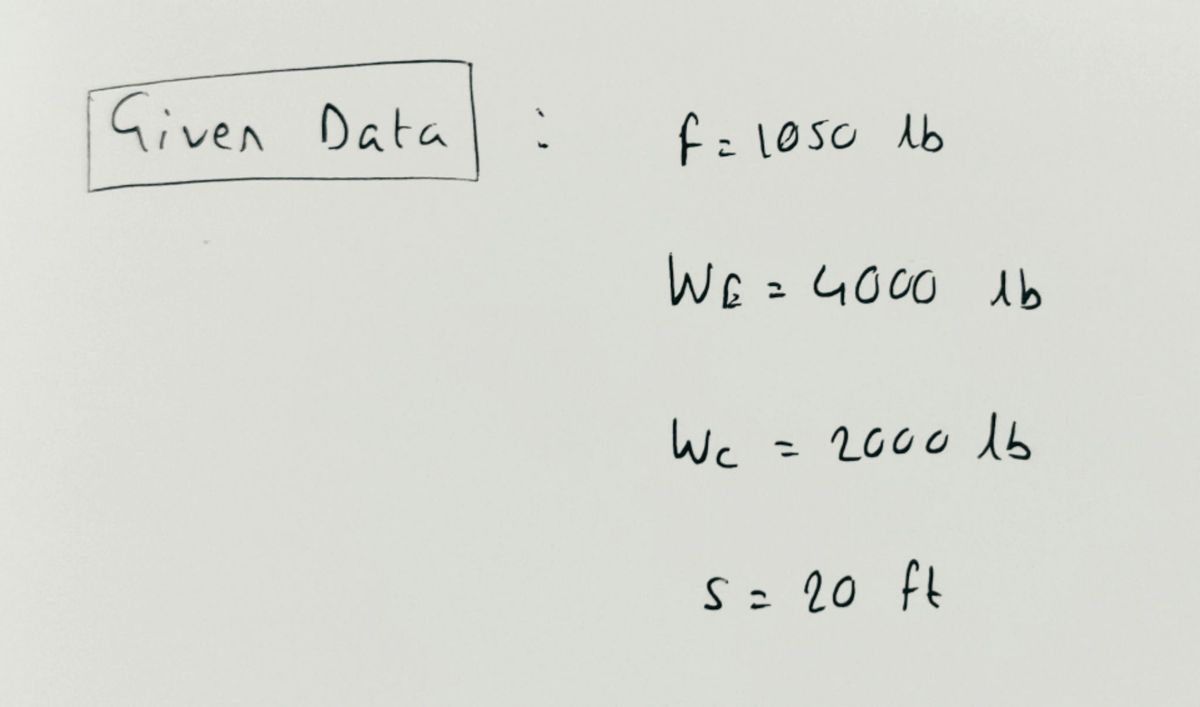 Given Data : F = 1050 lb
WE = 4000 lb
Wc = 2000 lb
S = 20 ft